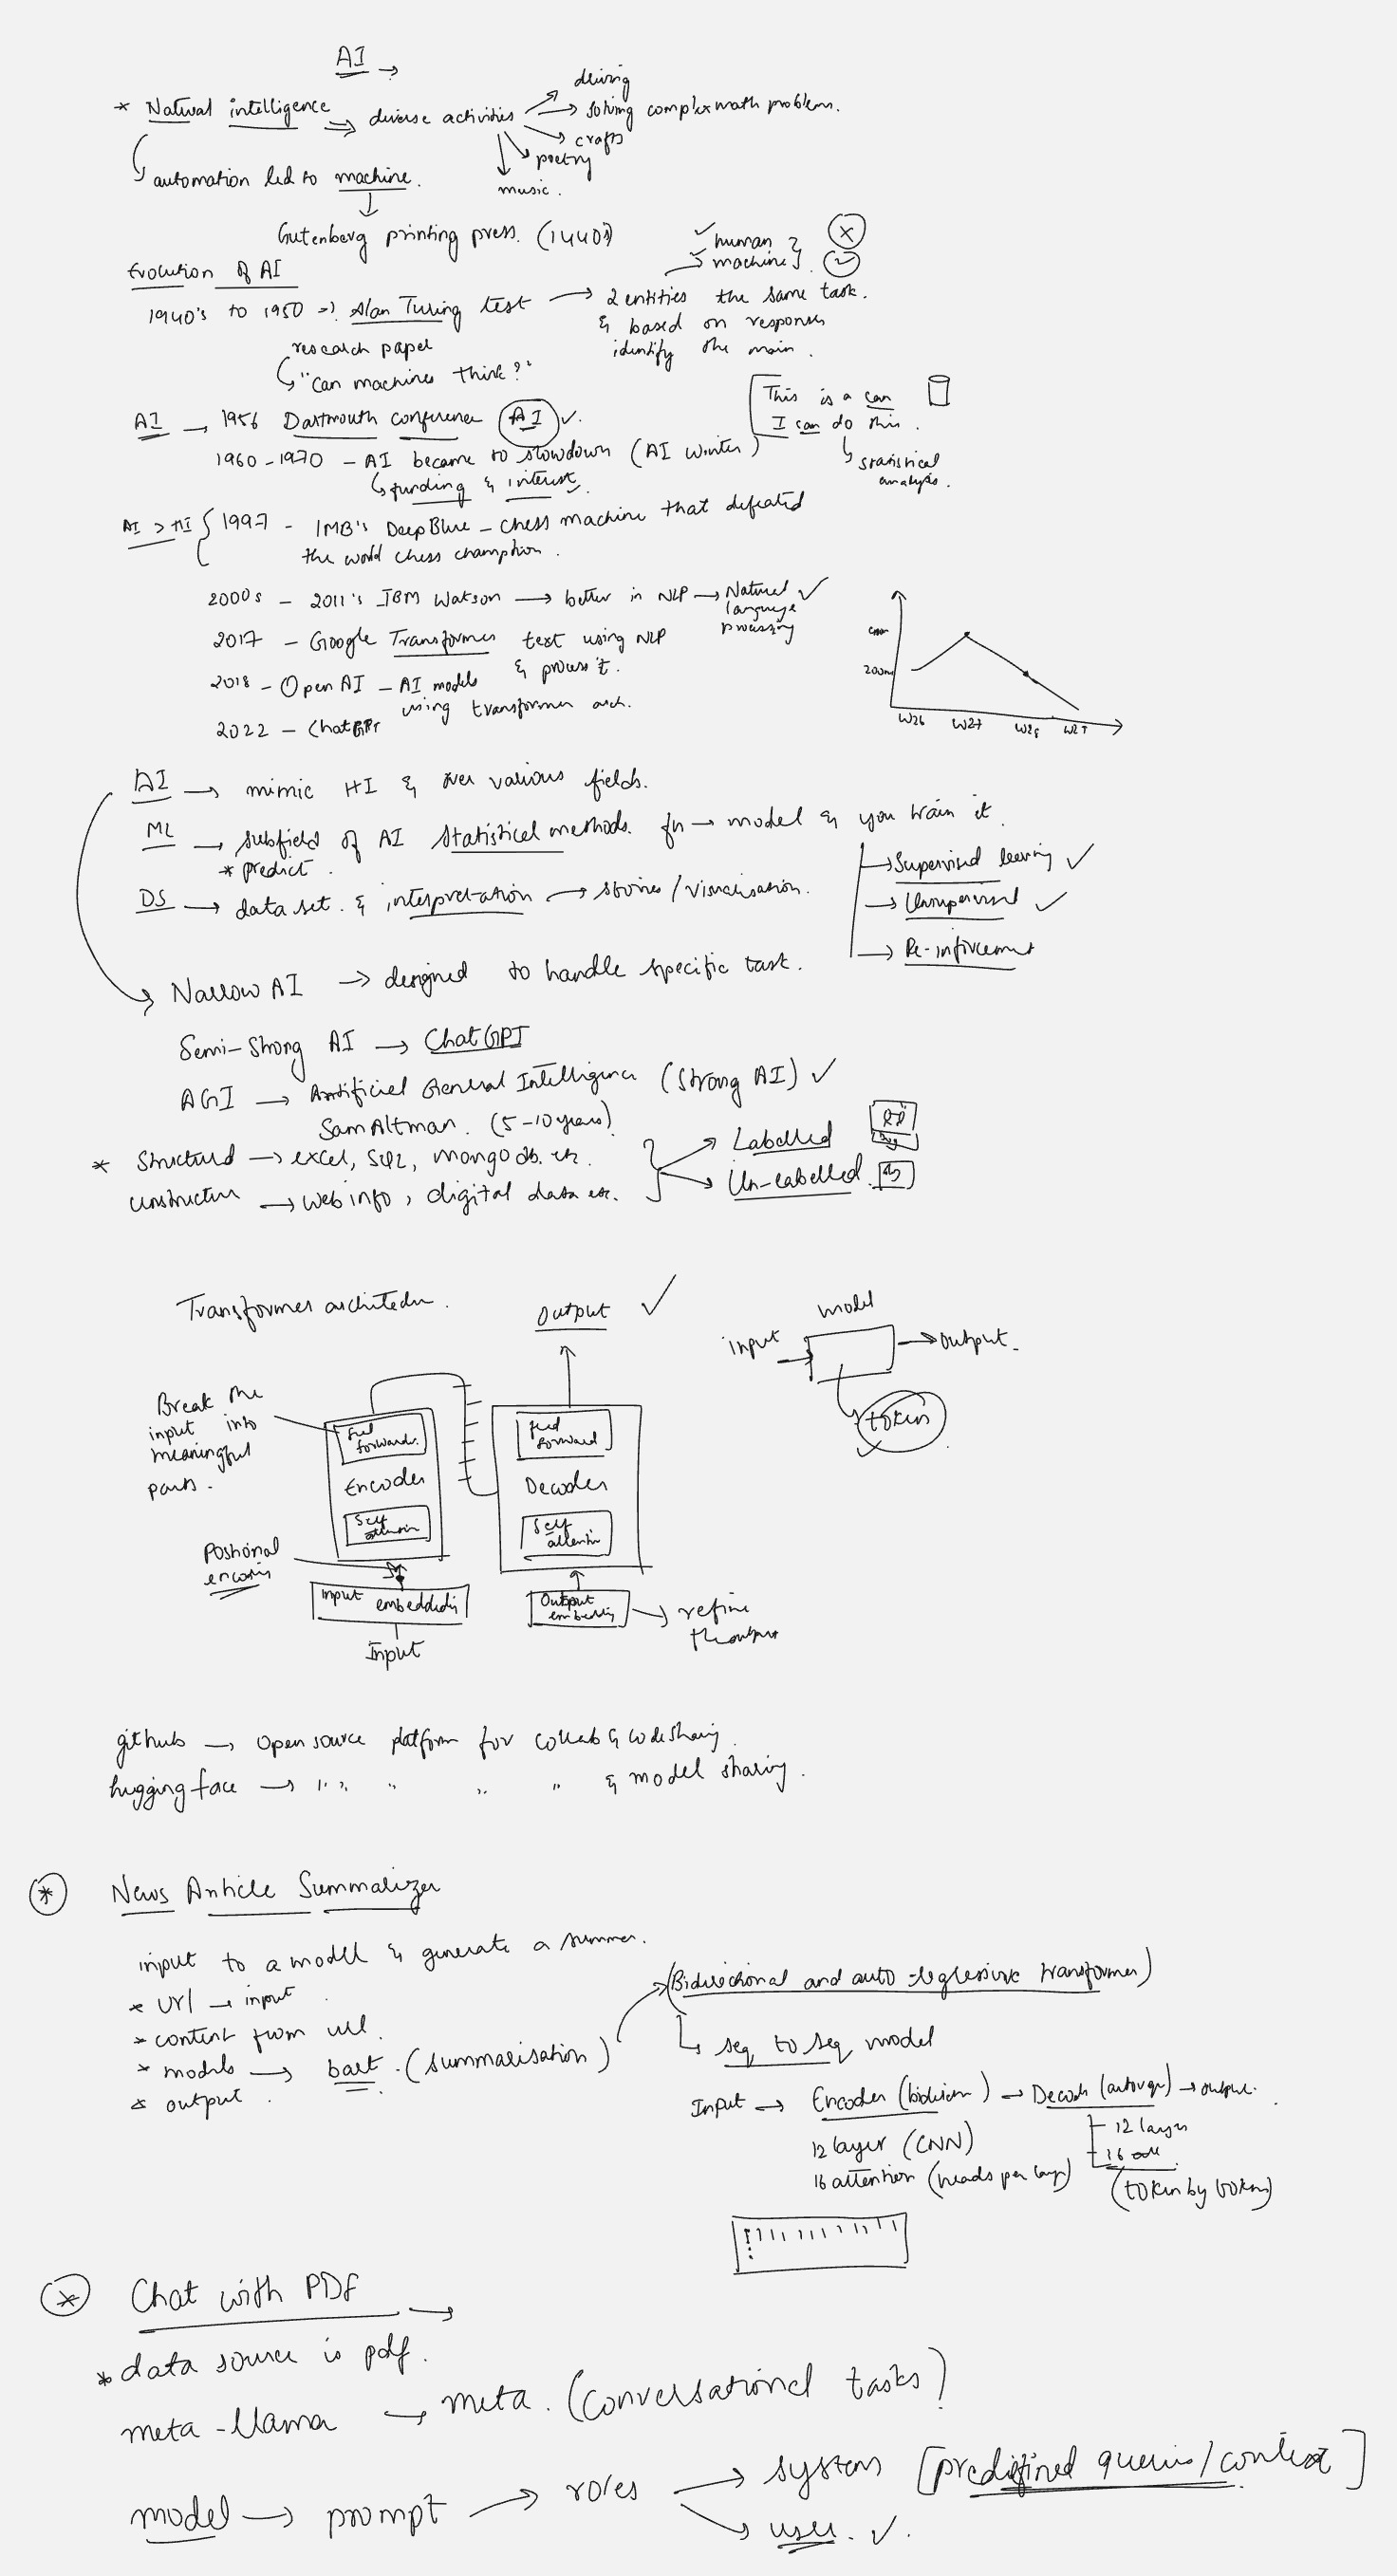 AI →
* Natural intelligence ⇒ diverse activities → driving
→ solving complex math problems.
→ crafts
→ poetry
→ music.
automation led to machine.
Gutenberg printing press. (1440s)
Evolution of AI
✓ human
✓ machine
1940's to 1950 → Alan Turing test → 2 entities the same task.
& based on responses
identify the main.
research paper
"Can machines think?"
AI → 1956 Dartmouth conference (AI) ✓
This is a can
I can do this.
statistical
analysis.
1960-1970 - AI became to slowdown (AI winter)
funding & interest
AI > HI { 1997 - IMB's DeepBlue - chess machine that defeated
the world chess chamption.
2000s - 2011's IBM Watson → better in NLP → Natural ✓
language
processing
2017 - Google Transformer text using NLP
& process it.
2018 - Open AI - AI models
using transformer arch.
2022 - ChatGPT
200
W26 W27 W28
AI → mimic HI & over various fields.
ML → subfield of AI statistical methods. fn → model & you train it.
* predict.
DS → data set. & interpretation → stories / visualisation.
→ Supervised learning ✓
→ Unsupervised ✓
→ Re-inforcement
Narrow AI → designed to handle specific task.
Semi-Strong AI → ChatGPT
AGI → Artificial General Intelligence (Strong AI) ✓
Sam Altman. (5-10 years)
* Structured → excel, SQL, mongo db. etc.
unstructure → web info, digital data etc.
→ Labelled
→ Un-labelled.
Transformer architectur.
Output ✓
model
input → → output.
token
Break the
input into
meaningful
parts.
Feed
forward.
Encoder
Self
attention
Positional
encoding
input embedding
Input
feed
forward
Decoder
Self
attention
Output
embedding → refine
the output
github → Open source platform for collab & code sharing.
hugging face → " " " " " & model sharing.
* News Article Summarizer
input to a model & generate a summer.
* Url → input
* content from url.
* models → bart. (summarisation)
* output.
(Bidirectional and auto-regressive transformer)
seq to seq model
Input → Encoder (bidirectn) → Decoder (autoreg) → output.
12 layer (CNN)
16 attention (heads per layer)
12 layer
16
(token by token)
* Chat with PDF →
* data source is pdf.
meta-llama → meta. (conversational tasks)
model → prompt → roles → system [predifined queries/context]
→ user. ✓.